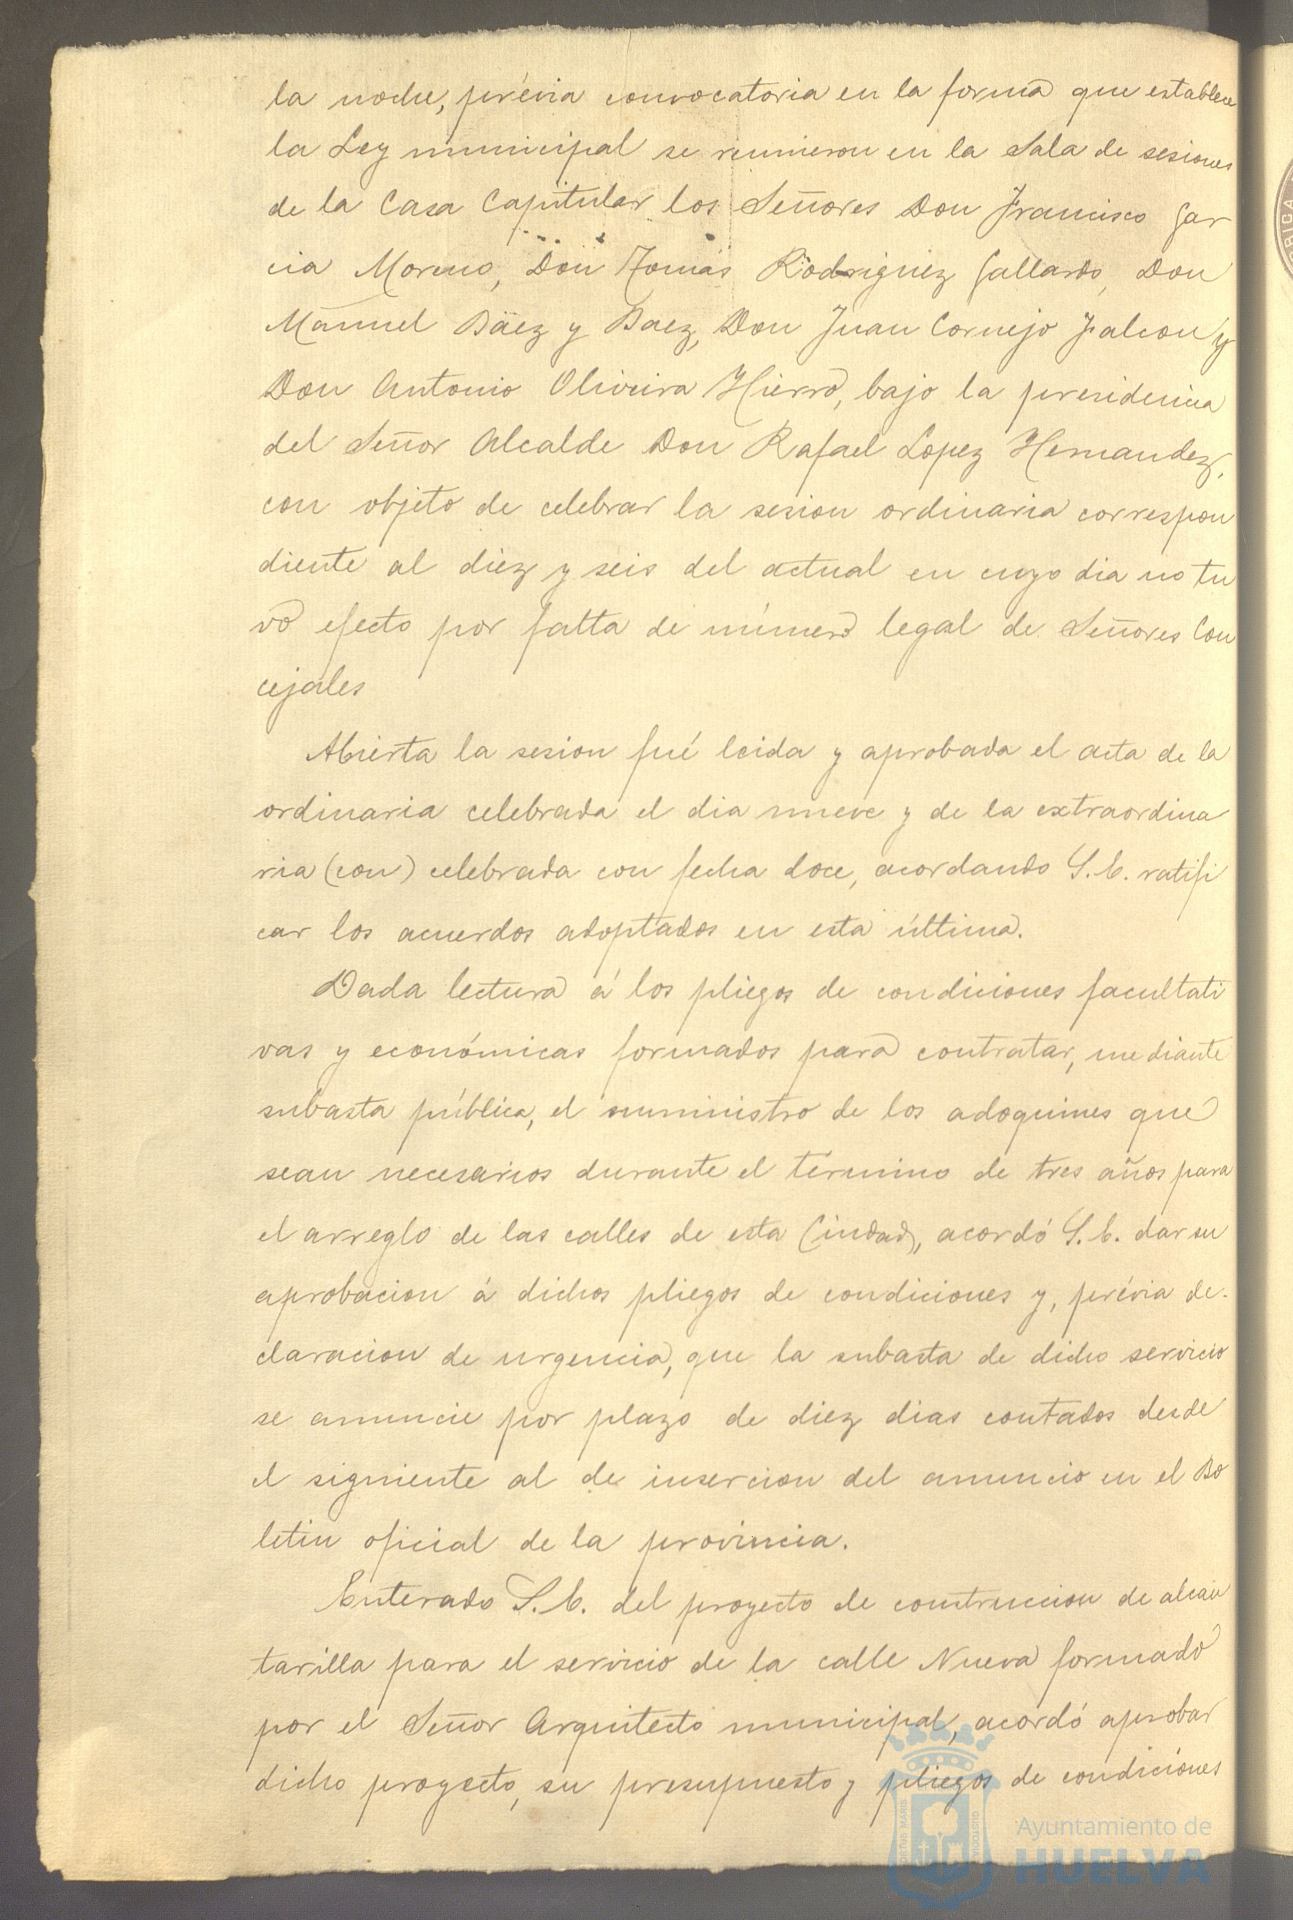 la noche, prévia convocatoria en la forma que establece
la Ley municipal se reunieron en la Sala de sesiones
de la Casa Capitular los Señores Don Francisco Gar
cia Moreno, Don Tomás Rodriguez Gallardo, Don
Manuel Báez y Baez, Don Juan Cornejo Falcon y
Don Antonio Oliveira Hierro, bajo la presidencia
del Señor Alcalde Don Rafael Lopez Hernandez,
con objeto de celebrar la sesion ordinaria correspon
diente al diez y seis del actual en cuyo dia no tu
vo efecto por falta de número legal de Señores Con
cejales
Abierta la sesion fué leida y aprobada el acta de la
ordinaria celebrada el dia nueve y de la extraordina
ria (con) celebrada con fecha doce, acordando S.E. ratifi
car los acuerdos adoptados en esta última.
Dada lectura á los pliegos de condiciones facultati
vas y económicas formados para contratar, mediante
subasta pública, el suministro de los adoquines que
sean necesarios durante el término de tres años para
el arreglo de las calles de esta Ciudad, acordó S.E. dar su
aprobacion á dichos pliegos de condiciones y, prévia de-
claracion de urgencia, que la subasta de dicho servicio
se anuncie por plazo de diez dias contados desde
el siguiente al de insercion del anuncio en el Bo
letin oficial de la provincia.
Enterado S.E. del proyecto de construccion de alcan
tarilla para el servicio de la calle Nueva formado
por el Señor Arquitecto municipal, acordó aprobar
dicho proyecto, su presupuesto y pliegos de condiciones
Ayuntamiento de
HUELVA